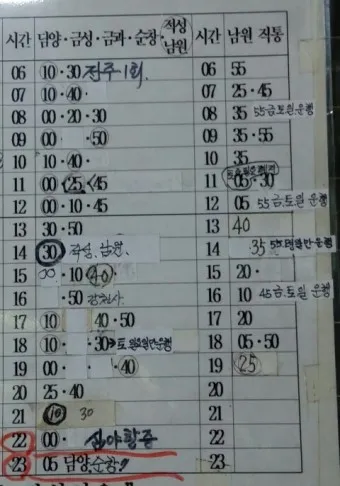 시간 담양·금성·금과·순창·적성 남원 시간 남원 직통
06 10·30 전주1회 06 55
07 10·40· 07 25·45
08 00·20·30 08 35 55금.토.일.운행
09 00 ·50 09 35·55
10 10·40· 10 35
11 00·25·45 11 05·30
12 00·10·45 12 05 55금.토일 운행
13 30·50 13 40
14 30 적성.남원 14 35
15 00· ·40 15 20·
16 ·50 16 10 45금.토.일 운행
17 10 40·50 17 20·50
18 10 ·30 18 05·50
19 00· ·40 19 25
20 25·40 20
21 10 30 21
22 00· 심야함준 22
23 05 담양,순창 23